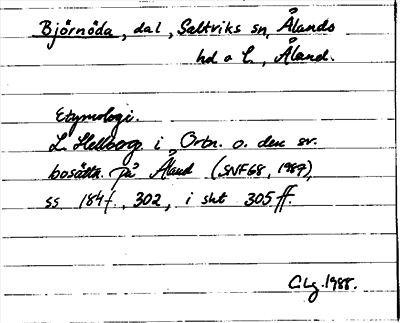 Björnöda, dal, Saltviks sn, Ålands
hd o l., Åland.
Etymologi.
L. Hellberg i Ortn. o. den sv.
bosättn. på Åland (SNF68, 1987),
ss 184f., 302, i sht 305ff.
CLg. 1988.